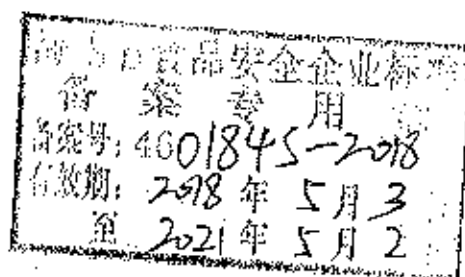 海南省食品安全企业标准
备案专用
备案号:4601845-2018
有效期:2018年5月3
至2021年5月2